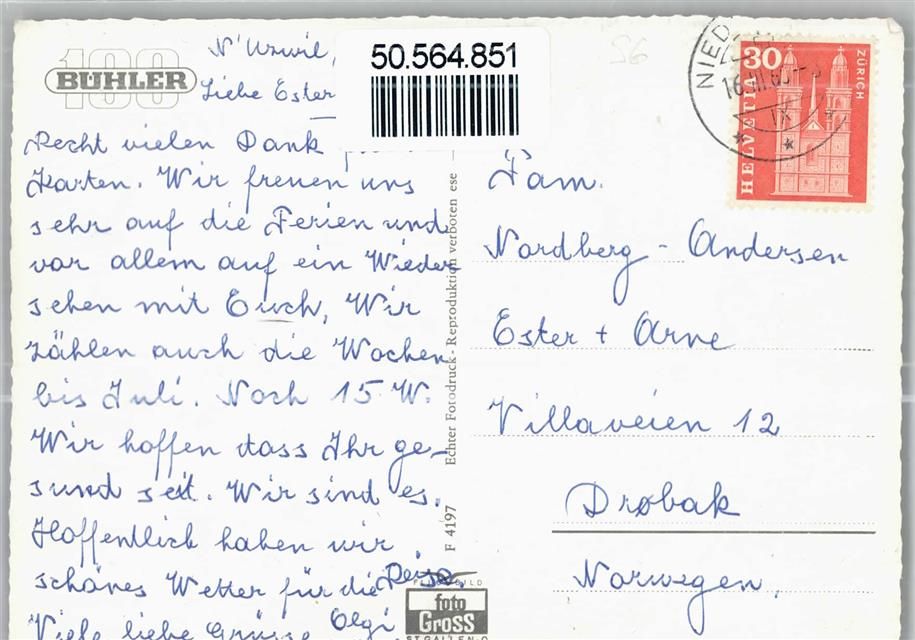 100
BÜHLER
N'Uzwil,
Liebe Ester
Recht vielen Dank
Karten. Wir freuen uns
sehr auf die Ferien und
vor allem auf ein Wieder
sehen mit Euch, Wir
zählen auch die Wochen
bis Juli. Noch 15 W.
Wir hoffen dass Ihr ge-
sund seit. Wir sind es.
Hoffentlich haben wir
schönes Wetter für die Reise.
Viele liebe Grüsse Olgi
50.564.851
56
NIED
16.III.65
IX
30
HELVETIA
ZÜRICH
Fam.
Nordberg - Andersen
Ester + Arne
Villaveien 12
Drøbak
Norwegen,
F 4197 Echter Fotodruck - Reproduktion verboten ese
foto
GROSS
ST. GALLEN-O